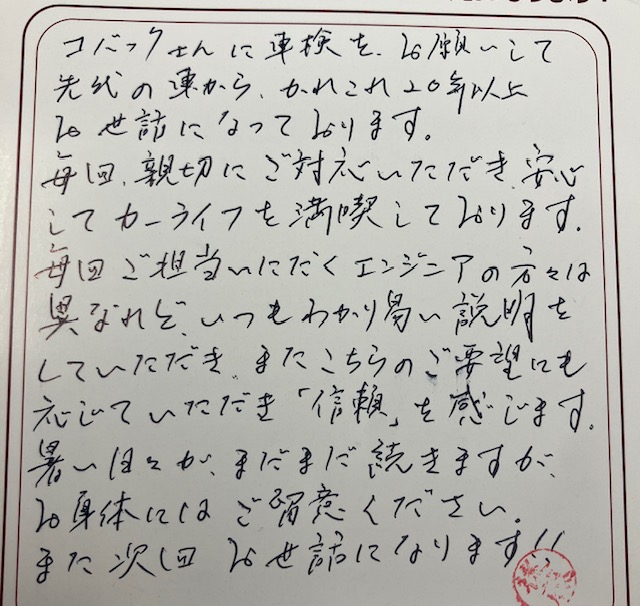 コバックさんに車検を、お願いして
先代の車から、かれこれ20年以上
お世話になっております。
毎回、親切にご対応いただき、安心
してカーライフを満喫しております。
毎回ご担当いただくエンジニアの方々は
異なれど、いつもわかり易い説明を
していただき、またこちらのご要望にも
応じていただき「信頼」を感じます。
暑い日々が、まだまだ続きますが、
お身体にはご留意ください。
また次回お世話になります!!